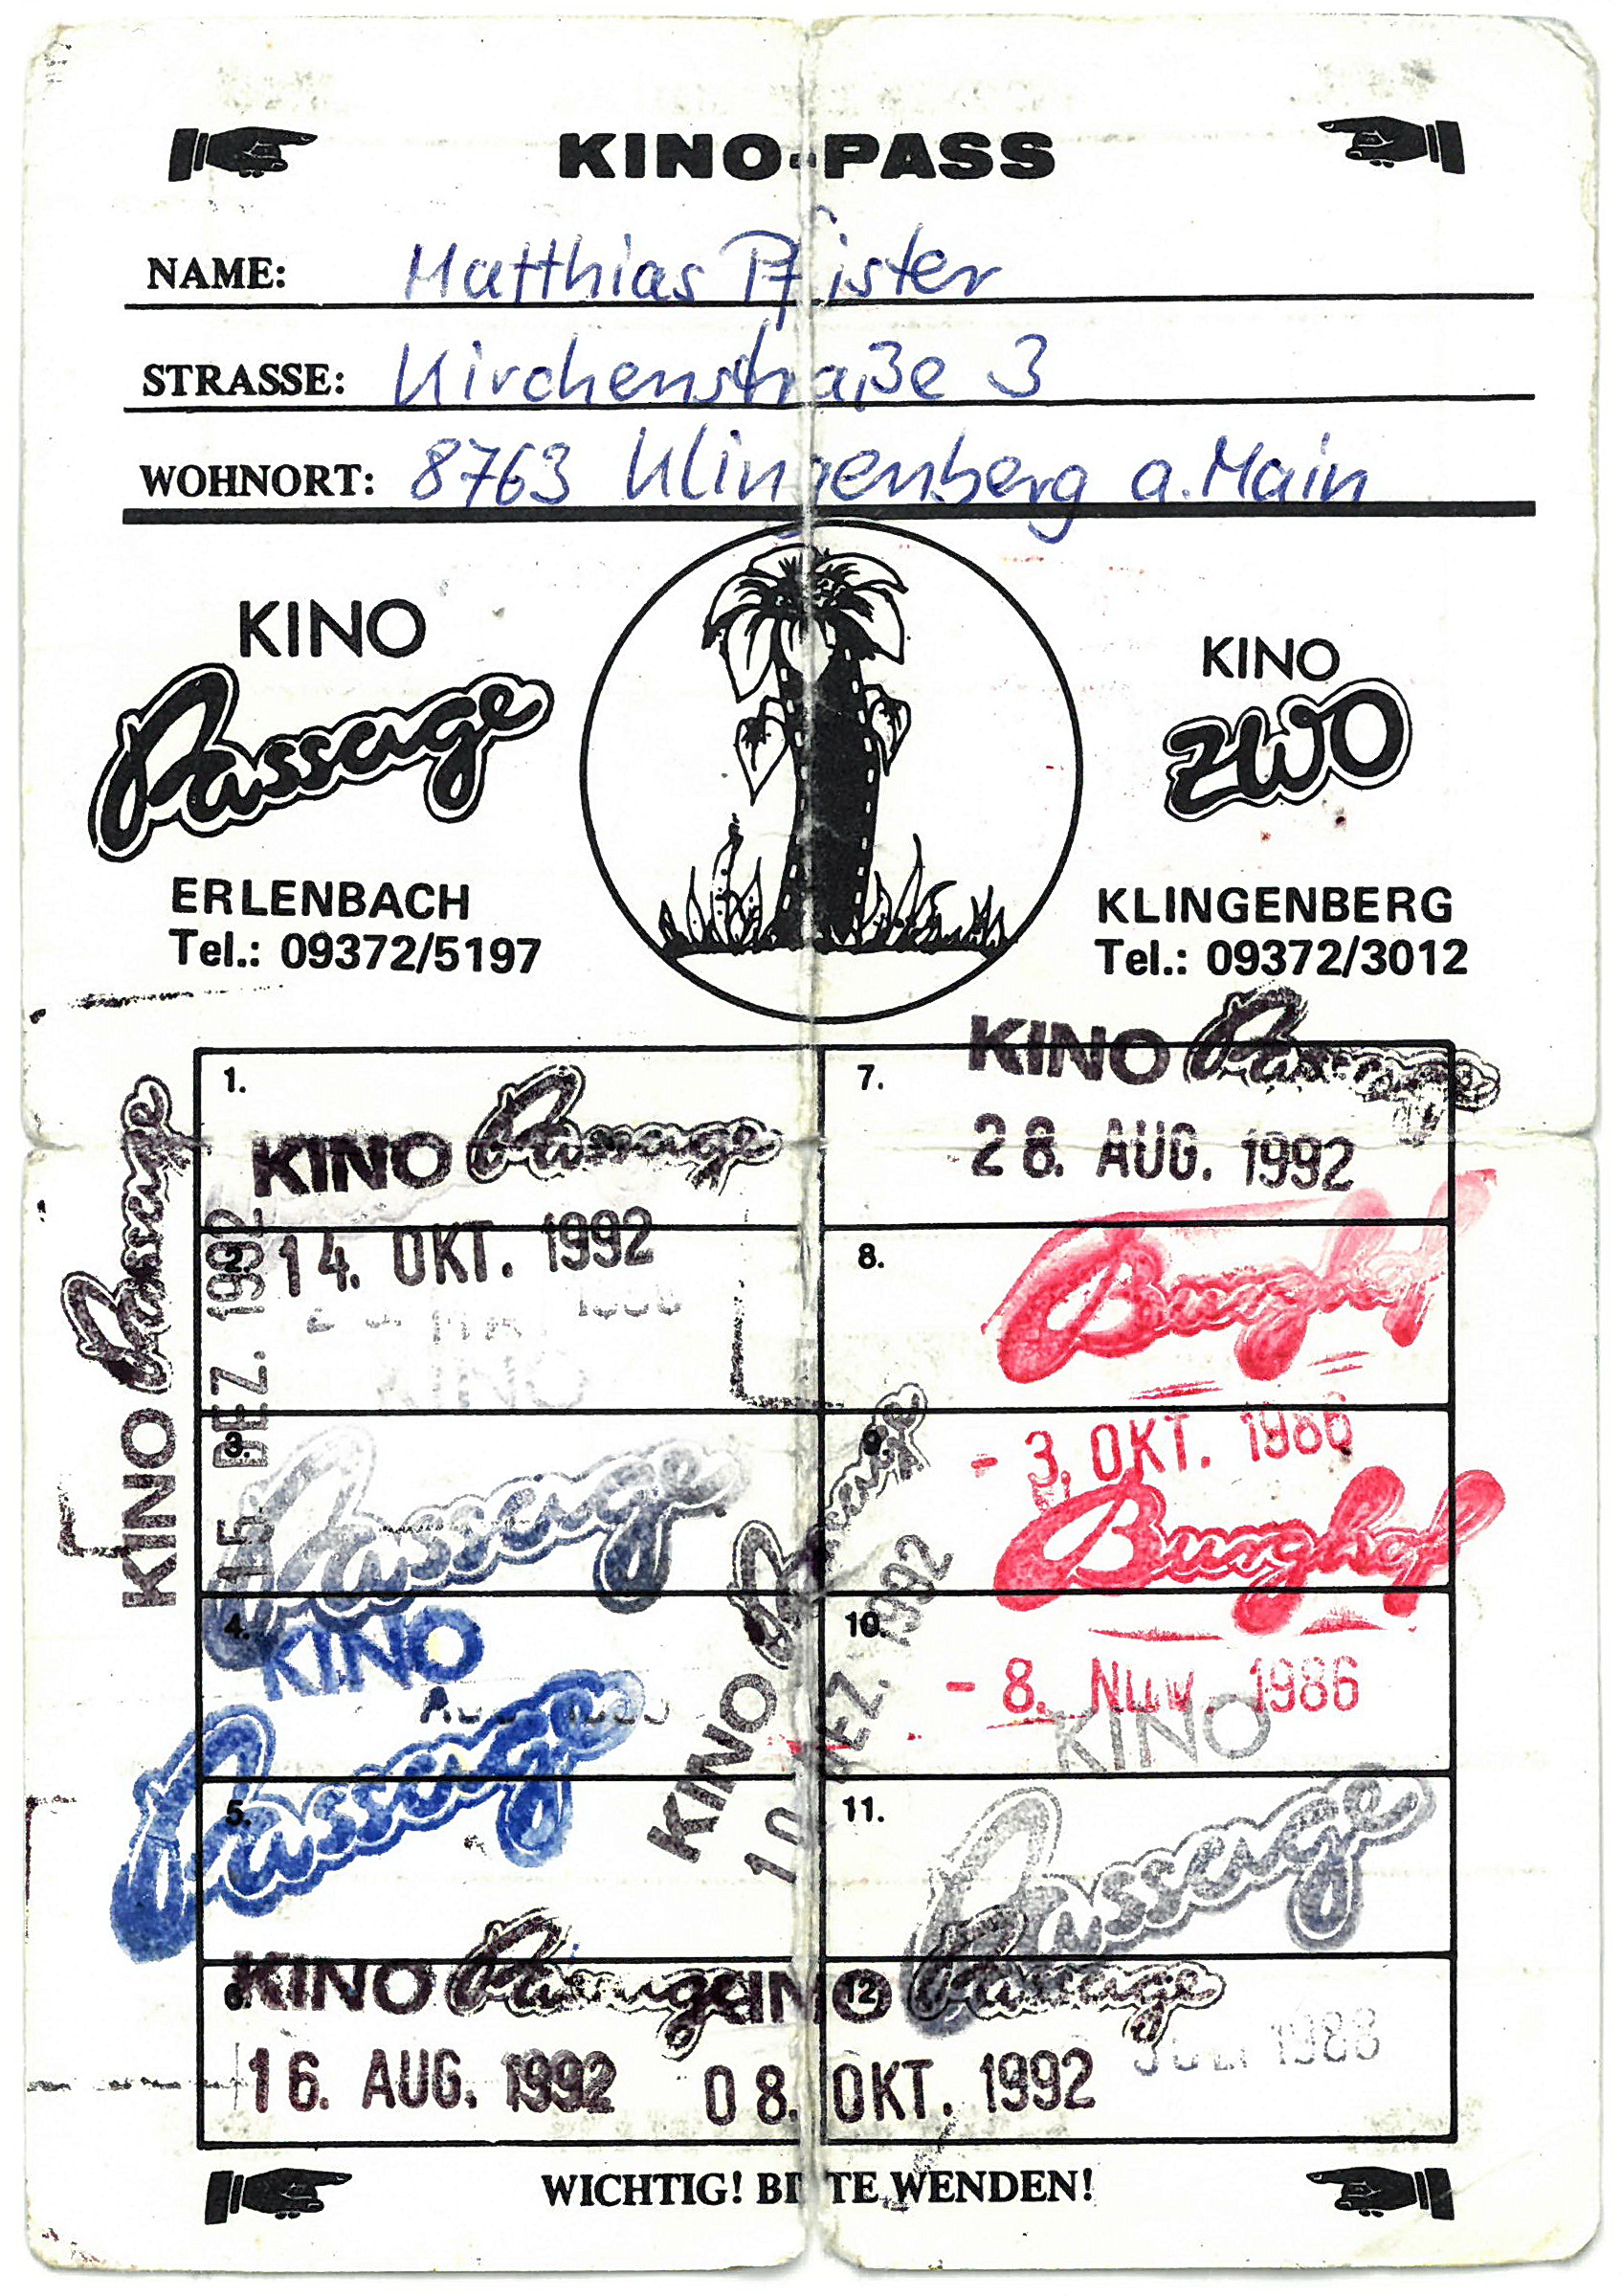 KINO-PASS
NAME: Matthias Pfister
STRASSE: Kirchenstraße 3
WOHNORT: 8763 Klingenberg a. Main
KINO
Passage
ERLENBACH
Tel.: 09372/5197
KINO
ZWO
KLINGENBERG
Tel.: 09372/3012
1.
KINO Passage
14. OKT. 1992
KINO
KINO Passage
15. DEZ. 1992
3.
Passage
4.
KINO
5.
Passage
KINO Passage
10. DEZ. 1992
6.
KINO Passage
16. AUG. 1992
7.
KINO Passage
28. AUG. 1992
8.
Burghof
- 3. OKT. 1986
9.
Burghof
10.
- 8. NOV. 1986
KINO
11.
Passage
12
KINO Passage
08. OKT. 1992
JULI 1988
WICHTIG! BITTE WENDEN!